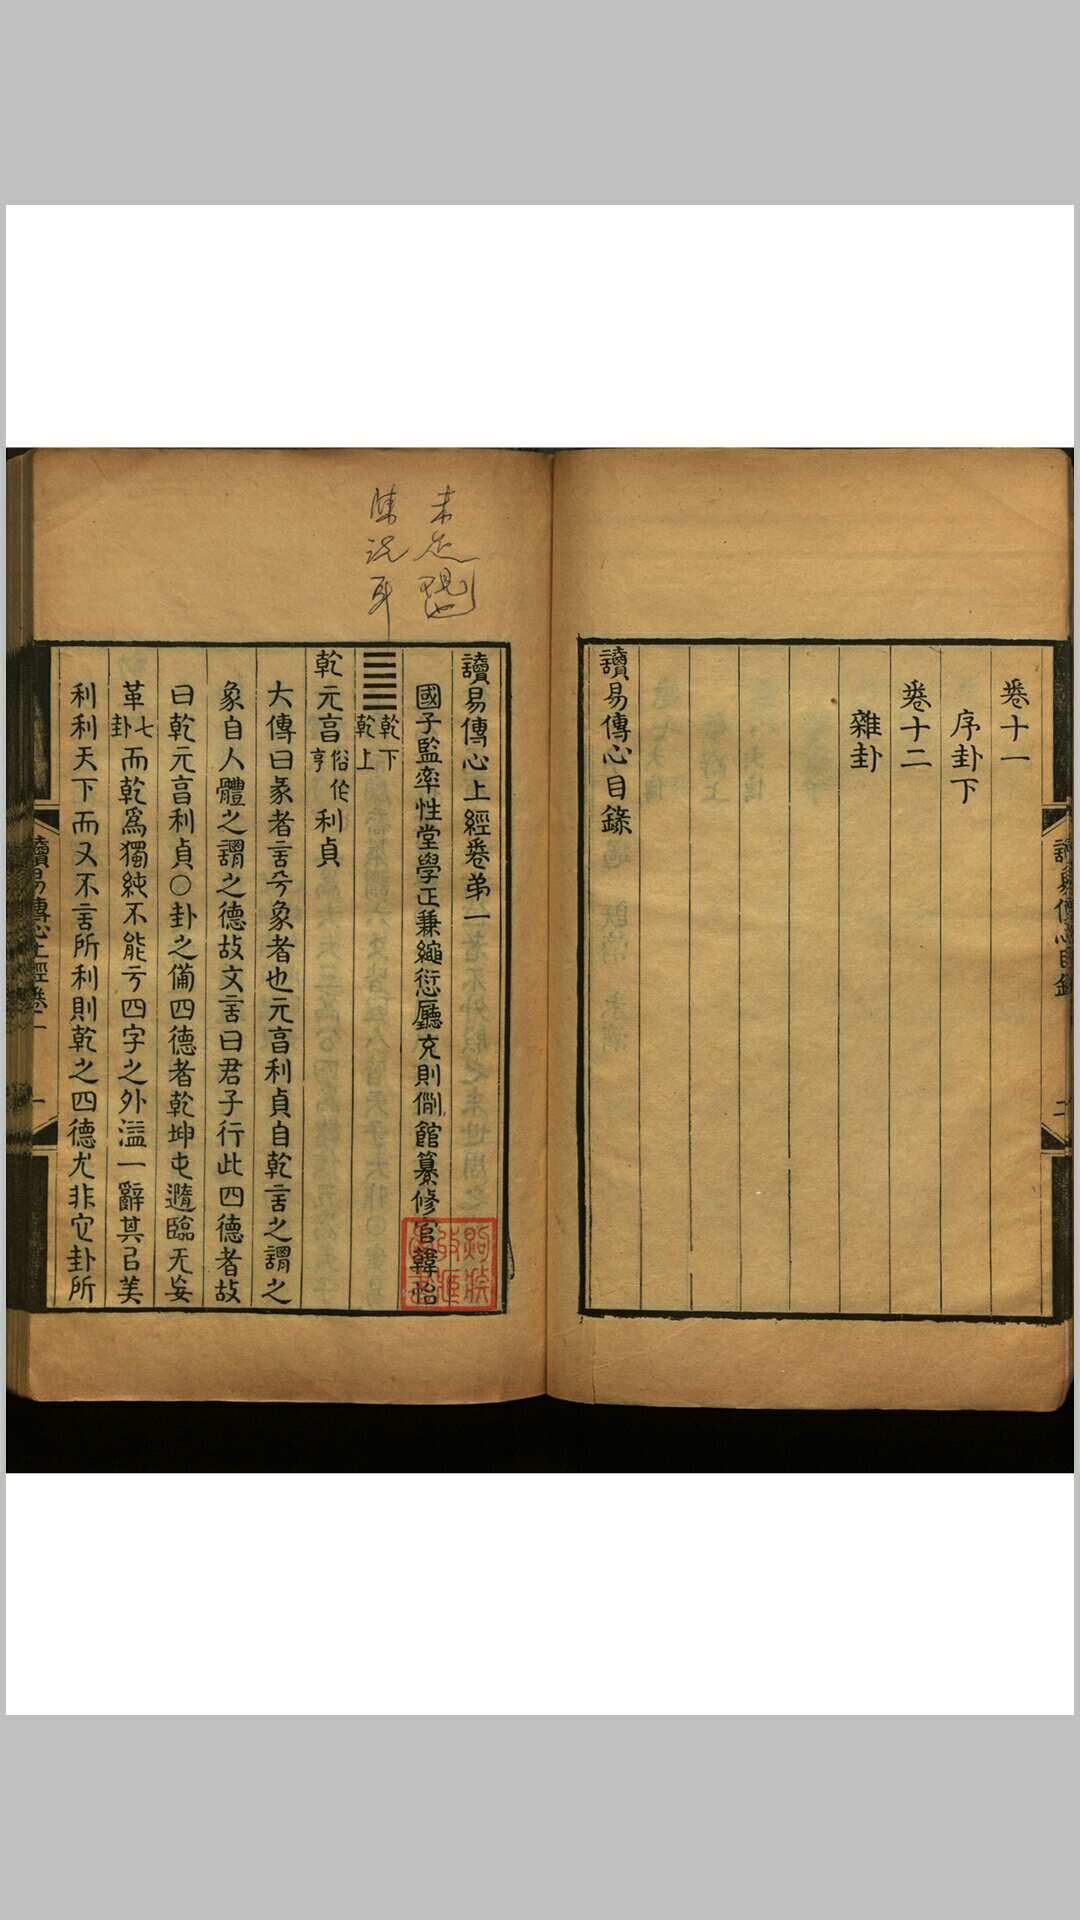 卷十一
序卦下
卷十二
雜卦
讀易傳心目錄
讀易傳心上經卷弟一
國子監率性堂學正兼繩愆廳充則例館纂修官韓怡
乾下
乾上
乾元亯俗作亨利貞
大傳曰彖者言乎象者也元亯利貞自乾言之謂之
象自人體之謂之德故文言曰君子行此四德者故
曰乾元亯利貞○卦之備四德者乾坤屯隨臨无妄
革七卦而乾爲獨純不能于四字之外溢一辭其㠯美
利利天下而又不言所利則乾之四德尤非它卦所
讀易傳心上經卷一
一